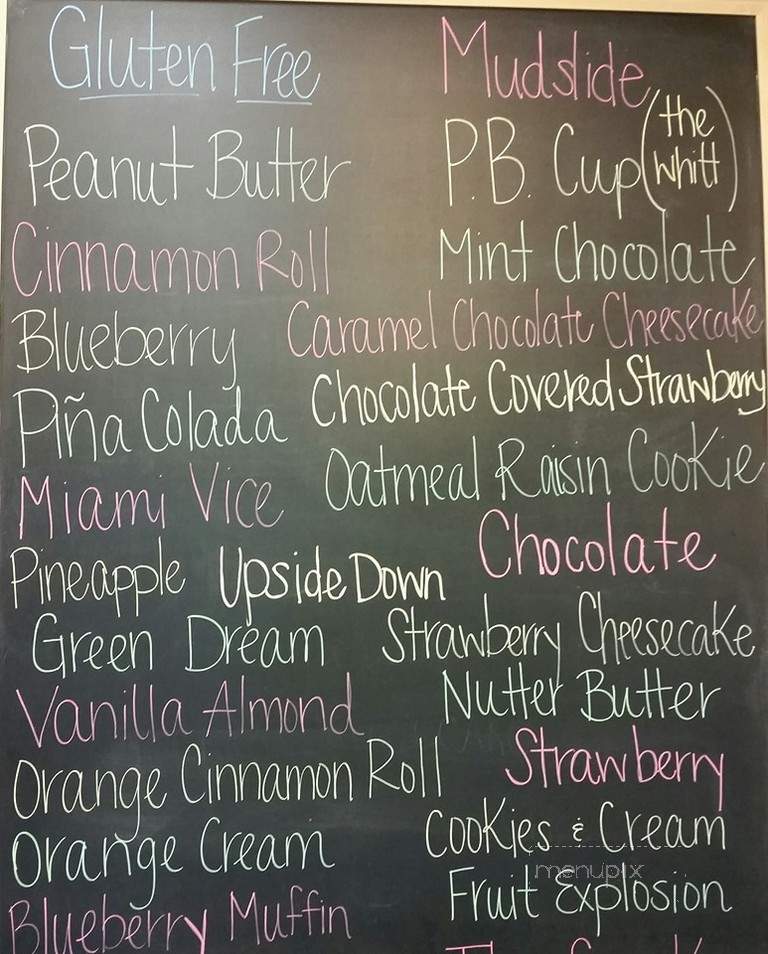 Gluten Free
Peanut Butter
Cinnamon Roll
Blueberry
Piña Colada
Miami Vice
Pineapple Upside Down
Green Dream
Vanilla Almond
Orange Cinnamon Roll
Orange Cream
Blueberry Muffin
Mudslide
P.B. Cup (the whitt)
Mint Chocolate
Caramel Chocolate Cheesecake
Chocolate Covered Strawberry
Oatmeal Raisin Cookie
Chocolate
Strawberry Cheesecake
Nutter Butter
Strawberry
Cookies & Cream
menupix
Fruit Explosion